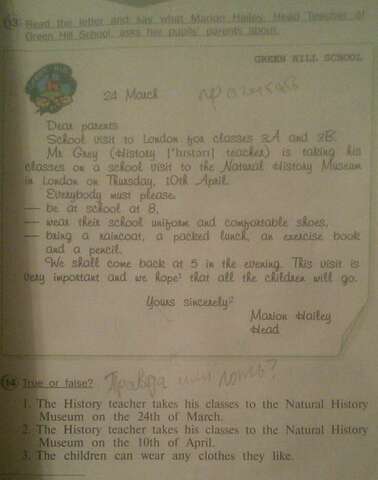 13 Read the letter and say what Marion Hailey, Head Teacher of
Green Hill School, asks her pupils' parents about.
GREEN HILL SCHOOL
24 March
Dear parents
School visit to London for classes 2A and 2B.
Mr Grey (History ['hɪstərɪ] teacher) is taking his
classes on a school visit to the Natural History Museum
in London on Thursday, 10th April.
Everybody must please:
— be at school at 8,
— wear their school uniform and comfortable shoes,
— bring a raincoat, a packed lunch, an exercise book
and a pencil.
We shall come back at 5 in the evening. This visit is
very important and we hope¹ that all the children will go.
Yours sincerely²
Marion Hailey
Head
14 True or false? Правда или ложь?
1. The History teacher takes his classes to the Natural History
Museum on the 24th of March.
2. The History teacher takes his classes to the Natural History
Museum on the 10th of April.
3. The children can wear any clothes they like.